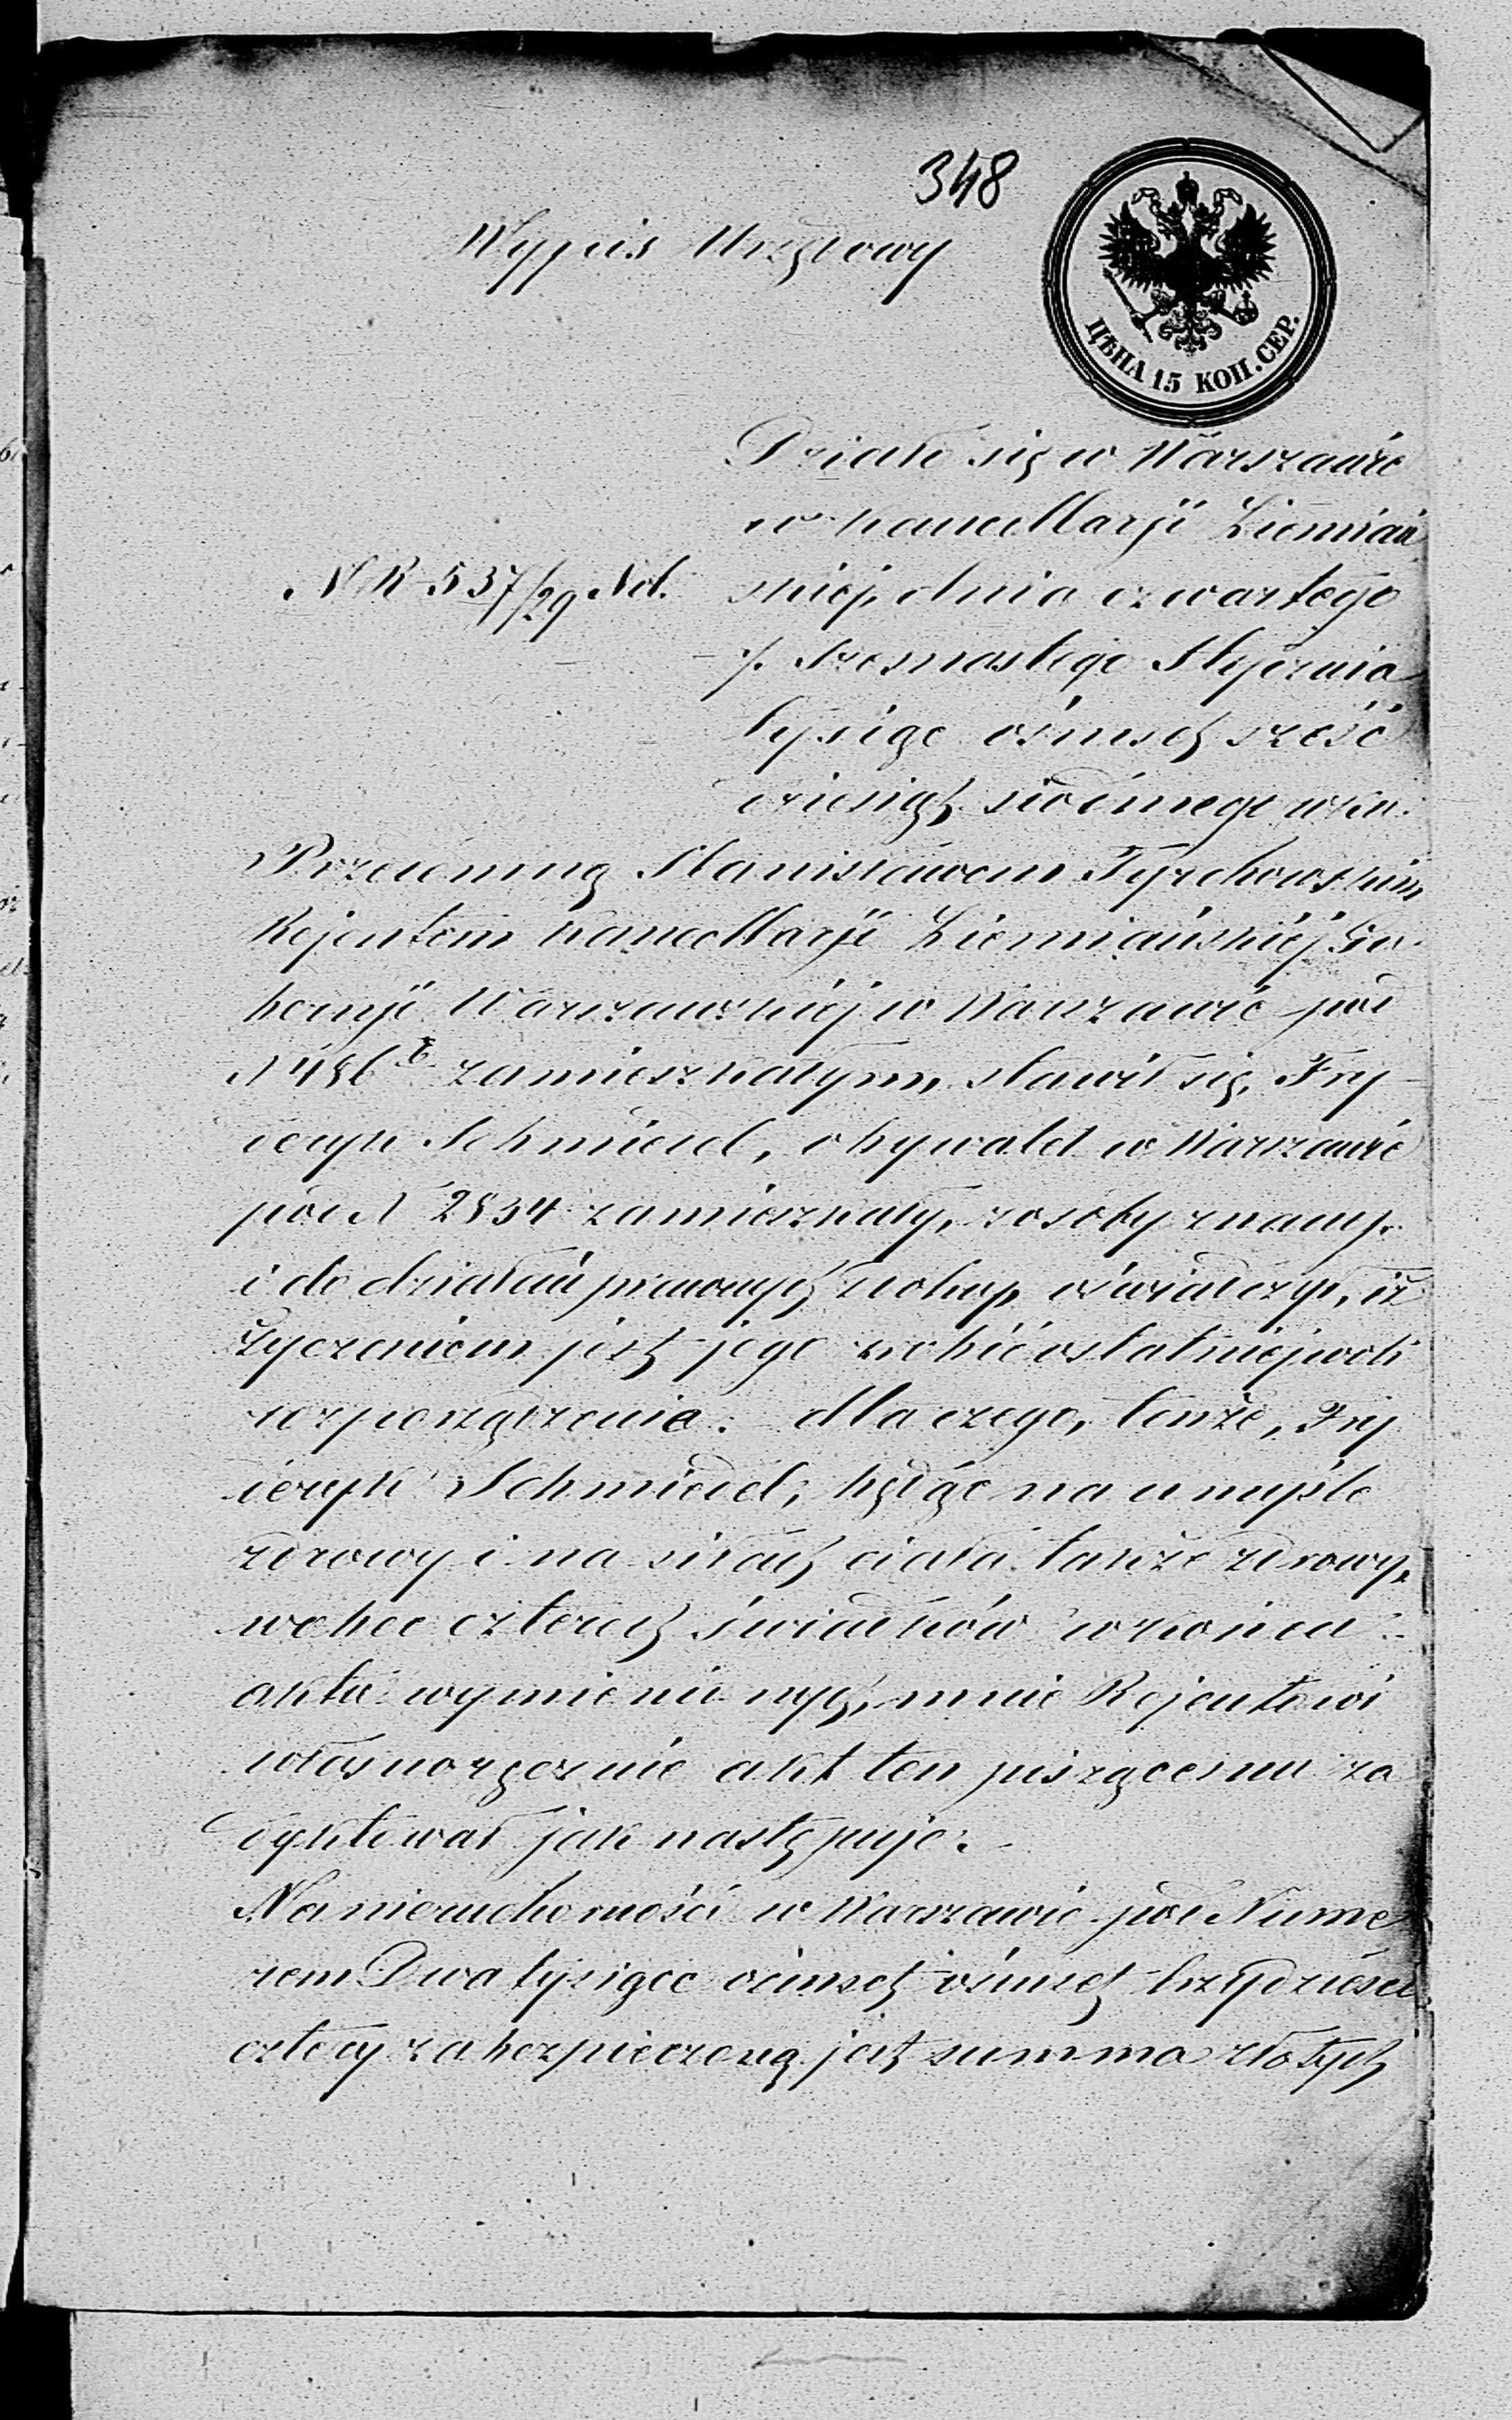 348
Wypis Urzędowy
ЦѢНА 15 КОП. СЕР.
Działo się w Warszawie
w Kancellarji Ziemiań
N R 537/29 Not.
skiej, dnia czwartego
/. szesnastego Stycznia
tysiąc ośmset sześć
dziesiąt siódmego roku.
Przedemną Stanisławem Zyrchowskim
Rejentem Kancellarji Ziemiańskiéj Gu-
bernji Warszawskiéj w Warszawie pod
N 486 zamieszkałym, stawił się, Fry
deryk Schmiedel, obywatel w Warszawie
pod N 2834 zamieszkały, z osoby znany
i do działań prawnych zdolny, oświadczył, iż
życzeniem jest jego zrobić ostatniéj woli
rozporządzenie. dla czego, tenże, Fry
deryk Schmiedel, będąc na umyśle
zdrowy i na siłach ciała także zdrowy,
wobec czterech świadków w końcu
aktu wymienionych, mnie Rejentowi
własnoręcznie akt ten piszącemu za
dyktował jak następuje:
Na nieruchomości w Warszawie pod Nume
rem Dwa tysiące ośmset ośmset trzydzieści
cztery zabezpieczoną jest summa złotych